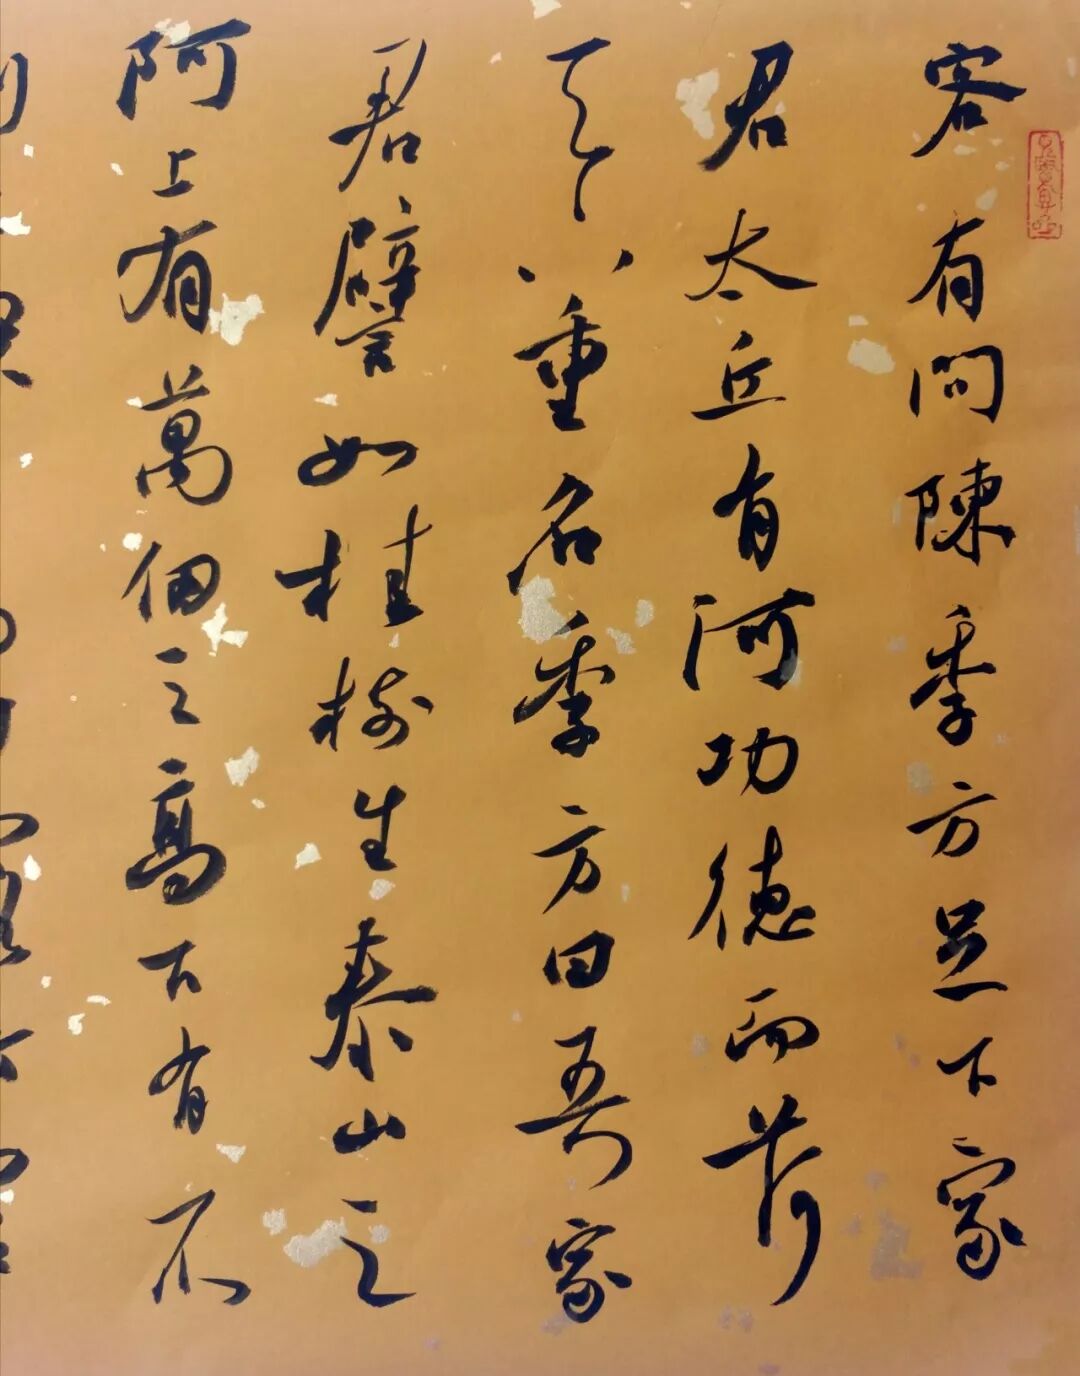 客有問陳季方足下家
君太丘有何功德而荷
天下重名季方曰吾家
君譬如桂樹生泰山之
阿上有萬仞之高下有不